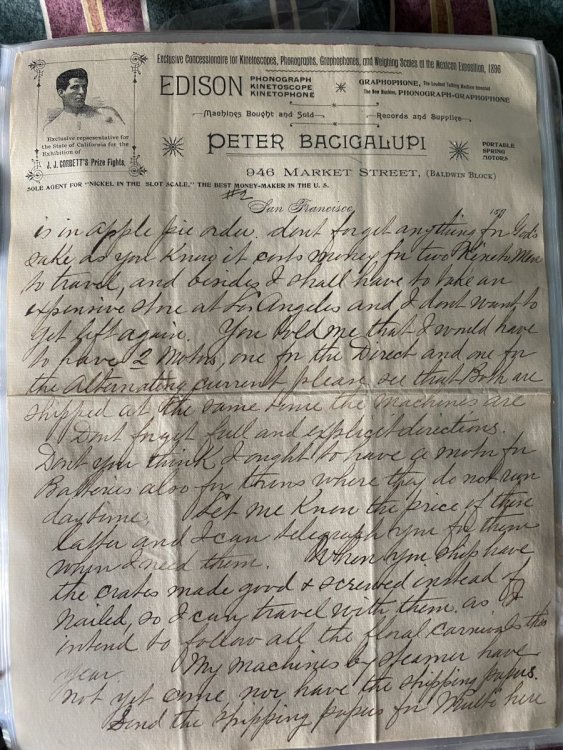 Exclusive Concessionaire for Kinetoscopes, Phonographs, Graphophones, and Weighing Scales at the Mexican Exposition, 1896
EDISON PHONOGRAPH
KINETOSCOPE
KINETOPHONE
GRAPHOPHONE, The Loudest Talking Machine Invented
The New Machine, PHONOGRAPH-GRAPHOPHONE
Machines Bought and Sold
Records and Supplies
Exclusive representative for
the State of California for the
Exhibition of
J. J. CORBETT'S Prize Fights.
PETER BACIGALUPI
PORTABLE
SPRING
MOTORS
946 MARKET STREET, (BALDWIN BLOCK)
SOLE AGENT FOR "NICKEL IN THE SLOT SCALE," THE BEST MONEY-MAKER IN THE U. S.
#2
San Francisco, 189
is in apple pie order. dont forget anything for God's
sake as you know it costs money for two Kineto Men
to travel, and besides I shall have to take an
expensive store at Los Angeles and I dont want to
get left again. You told me that I would have
to have 2 Motors, one for the Direct and one for
the Alternating current please see that Both are
shipped at the same time the machines are
Dont forget full and explicit directions.
Dont you think I ought to have a motor for
Batteries also for towns where they do not run
daytime. Let me Know the price of these
latter and I can telegraph you for them
when I need them. When you ship have
the crates made good & screwed instead of
nailed, so I can travel with them as I
intend to follow all the floral carnivals this
year. My machines by steamer have
not yet come, nor have the shipping papers.
Send the shipping papers for here